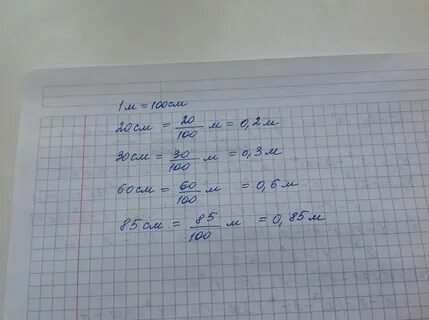 1м = 100см
20см = 20/100 м = 0,2м
30см = 30/100 м = 0,3м
60см = 60/100 м = 0,6м
85см = 85/100 м = 0,85м